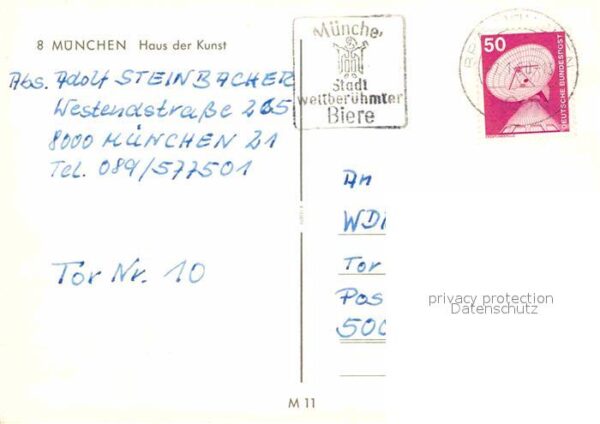 8 MÜNCHEN Haus der Kunst
Abs. Adolf STEINBACHER
Westendstraße 265
8000 MÜNCHEN 21
Tel. 089/577501
Tor Nr. 10
Münche
Stadt
weltberühmter
Biere
50
DEUTSCHE BUNDESPOST
An
WDR
Tor
Pos
500
privacy protection
Datenschutz
M 11